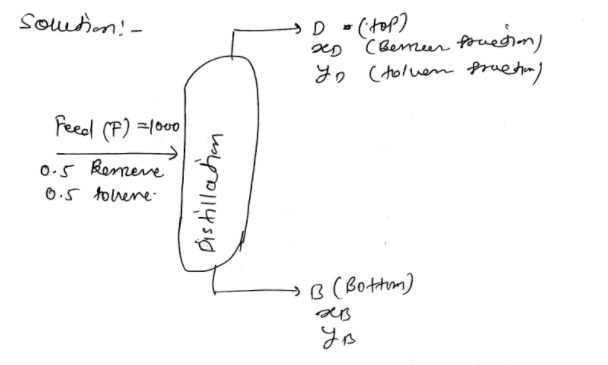 Solution:-
D - (top)
xD (Benzen fraction)
yD (toluen fraction)
Feed (F) = 1000
0.5 Benzene
0.5 toluene.
Distillation
B (Bottom)
xB
yB